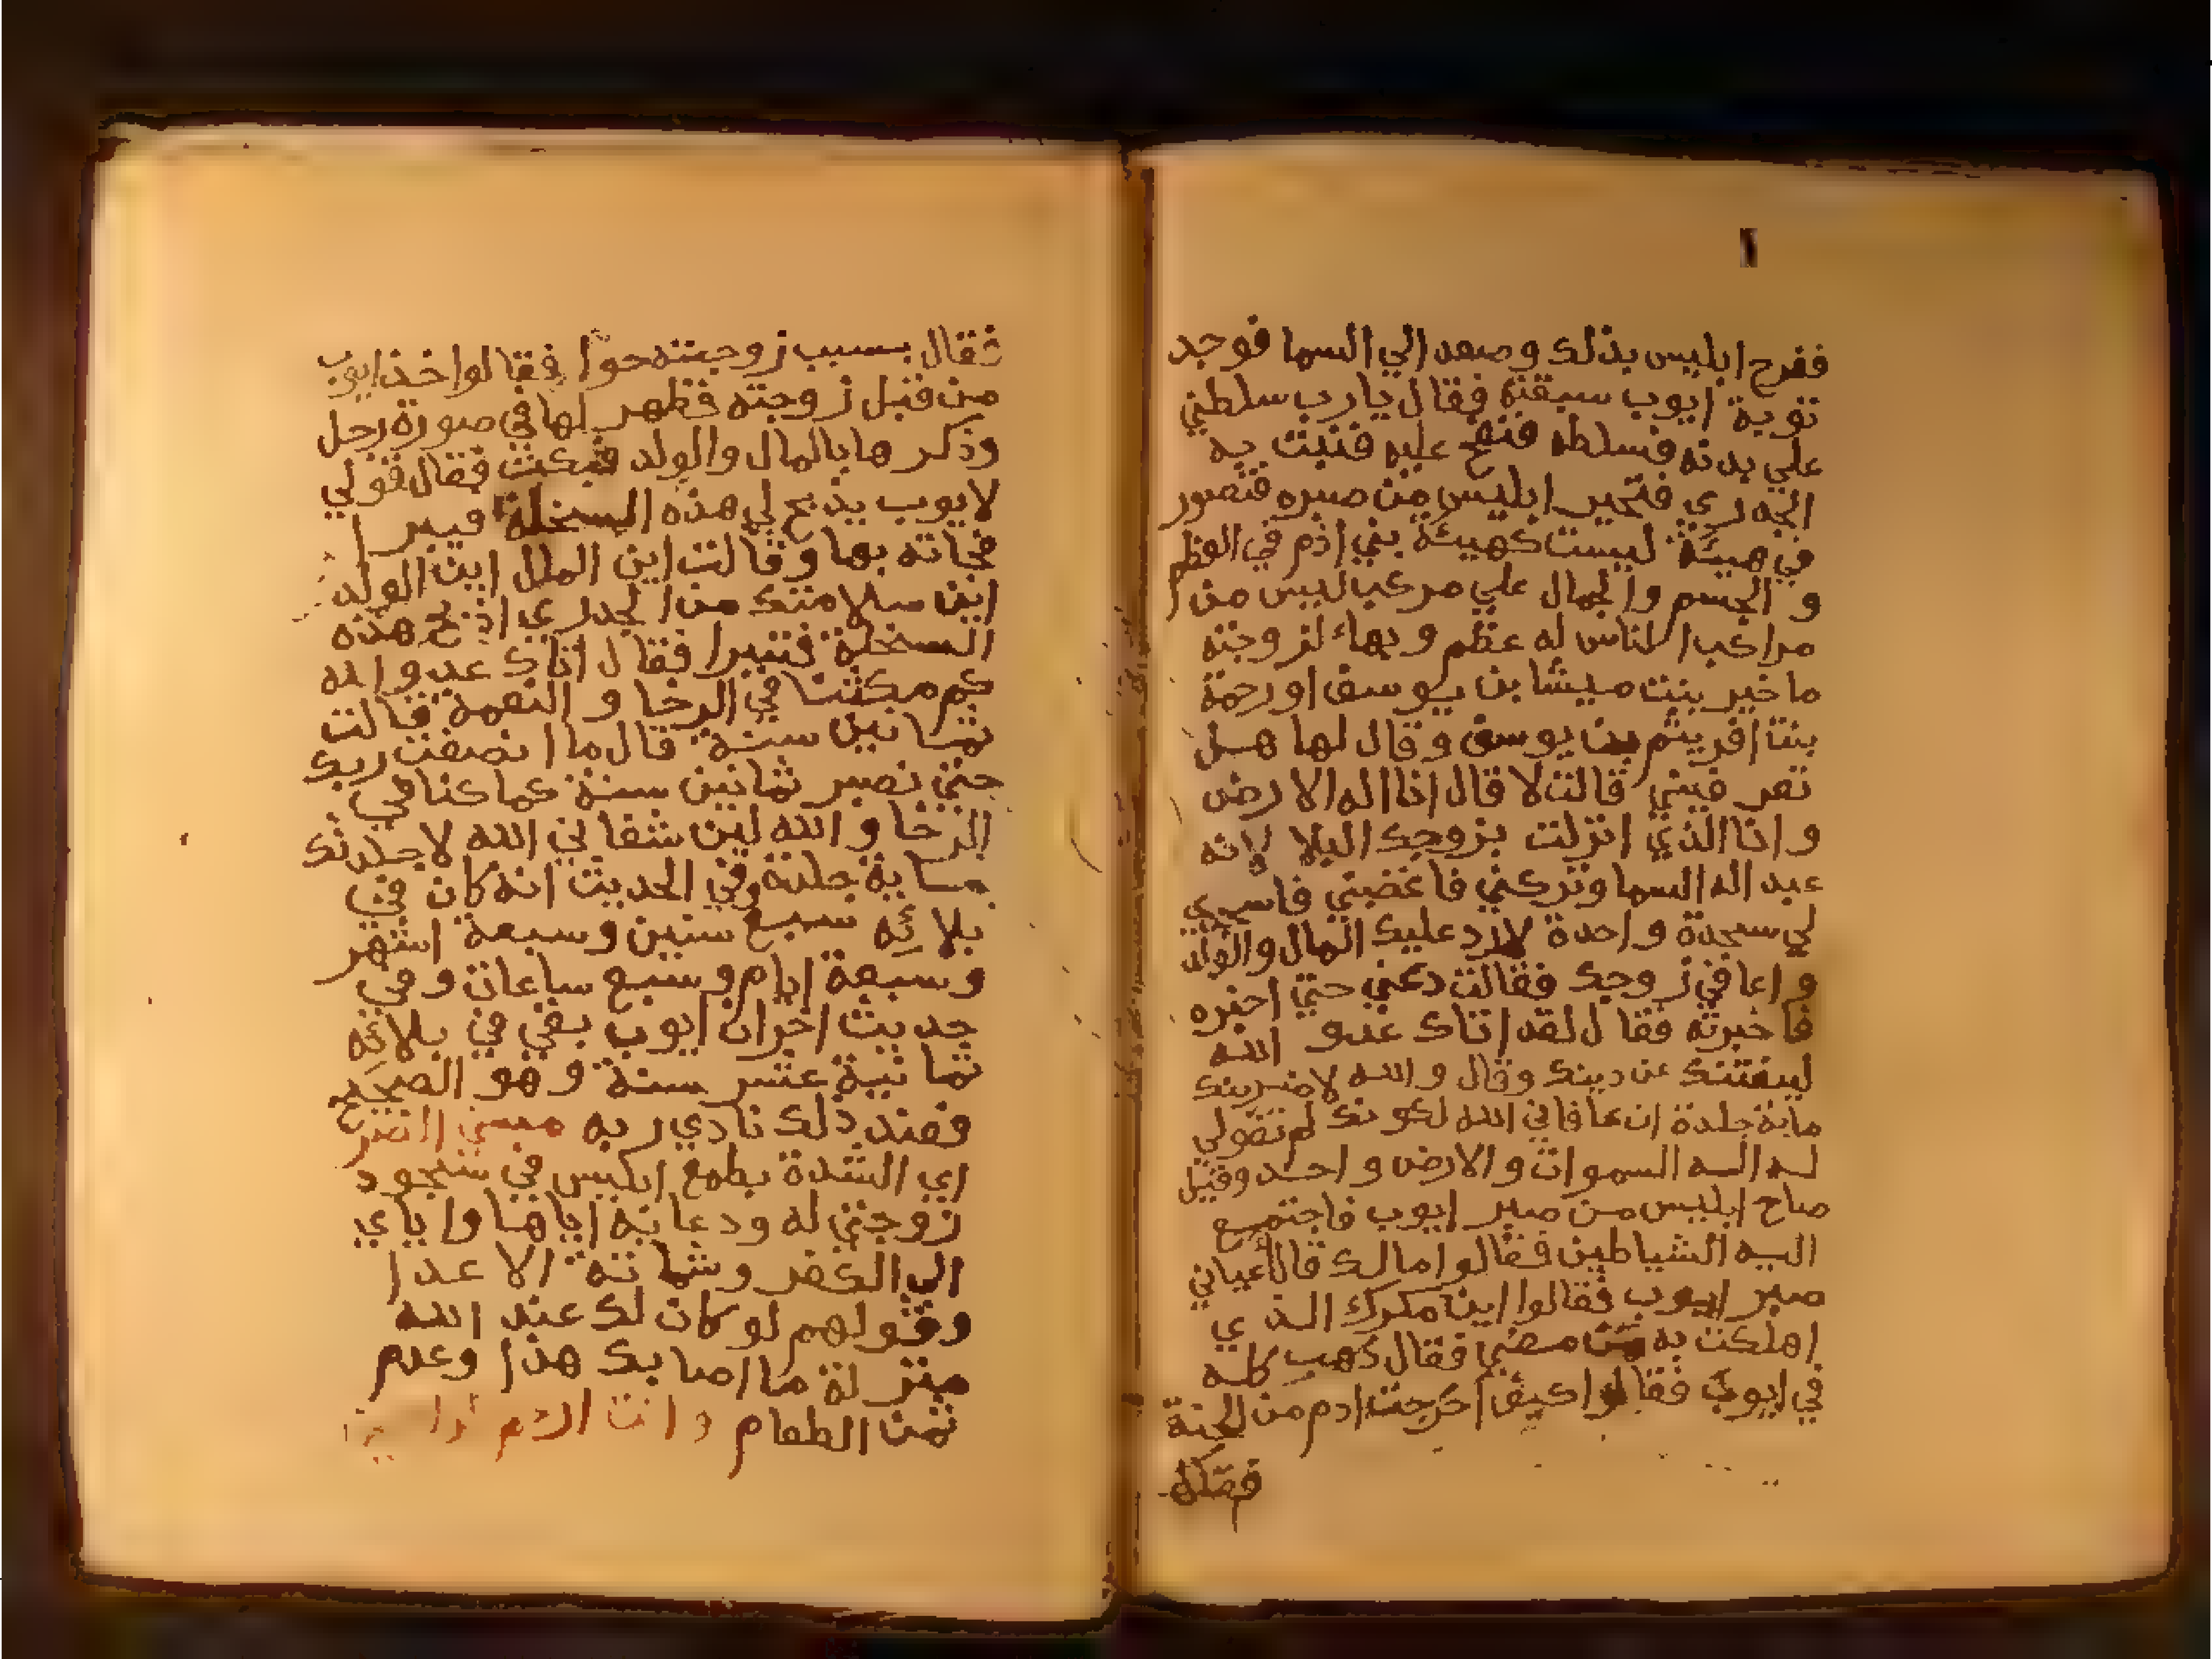 ففرح ابليس بذلك وصعد الي السما فوجد
توبة ايوب سبقته فقال يارب سلطني
علي بدنه فسلطه فنفخ عليه فنبت به
الجدري فتحير ابليس من صبره فتصور
في هيئة ليست كهيئة بني ادم في العظم
و الجسم والجمال علي مركب ليس من
مراكب الناس له عظم وبهاء لزوجته
ماخير بنت ميشا بن يوسف او رحمة
بنت افريثم بن يوسف وقال لها هل
تعرفيني قالت لا قال انا اله الارض
وانا الذي انزلت بزوجك البلا لانه
عبد اله السما وتركني فاغضبني فاسجدي
لي سجدة واحدة لارد عليك المال والولد
واعافي زوجك فقالت دعني حتي اخبره
فاخبرته فقال لقد اتاك عدو الله
ليفتنك عن دينك وقال والله لاضربنك
ماية جلدة ان عافاني الله لكونك لم تقولي
له اله السموات والارض واحد وقيل
صاح ابليس من صبر ايوب فاجتمع
اليه الشياطين فقالوا مالك قال أعياني
صبر ايوب فقالوا اين مكرك الذي
اهلكت به من مضي فقال ذهب كله
في ايوب فقالوا كيف اخرجت ادم من الجنة
فقال
فقال بسبب زوجته حوا فقالوا خذ ايوب
من قبل زوجته فظهر لها في صورة رجل
وذكرها بالمال والولد فبكت فقال قولي
لايوب يذبح لي هذه السخلة فيبرا
فجاته بها وقالت اين المال اين الولد
اين سلامتك من الجدري اذبح هذه
السخلة فتبرا فقال اتاك عدو الله
كم مكثنا في الرخا و النعمة قالت
ثمانين سنة قال ما انصفت ربك
حتي نصبر ثمانين سنة كما كنا في
الرخا والله لين شفاني الله لاجلدنك
ماية جلدة وفي الحديث انه كان في
بلائه سبع سنين وسبعة اشهر
وسبعة ايام وسبع ساعات وفي
حديث اخران ايوب بقي في بلائه
ثمانية عشر سنة وهو الصحيح
فعند ذلك نادي ربه مسني الضر
اي الشدة بطمع ابليس في سجود
زوجتي له ودعايه اياها واياي
الي الكفر وشماتة الاعدا
وقولهم لو كان لك عند الله
منزلة ما اصابك هذا وعدم
ثمن الطعام وانت ارحم